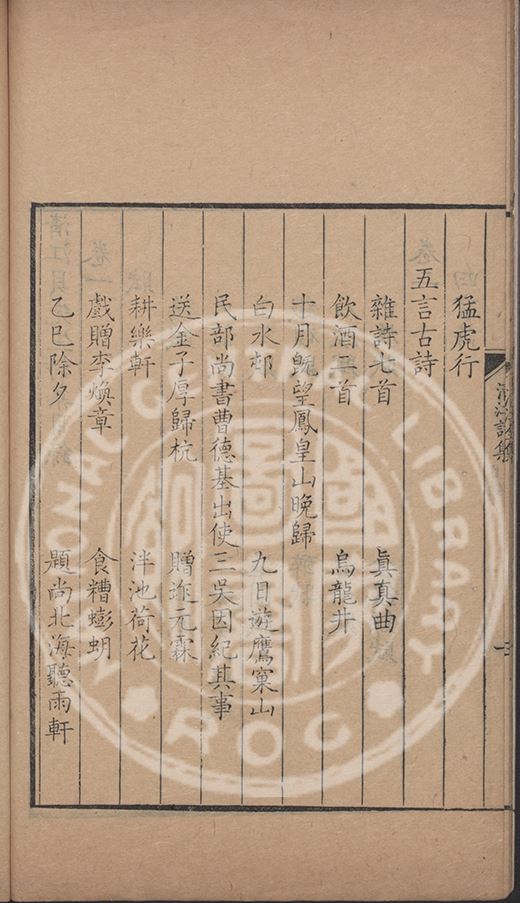 清江詩集
猛虎行
五言古詩
雜詩七首 眞真曲
飲酒二首 烏龍井
十月旣望鳳皇山晚歸
白水邨 九日遊鷹窠山
民部尚書曹德基出使三吳因紀其事
送金子厚歸杭 贈迮元霖
耕樂軒 泮池荷花
戲贈李煥章 食糟蟛蚏
乙巳除夕 題尚北海聽雨軒
LIBRARY
ROC